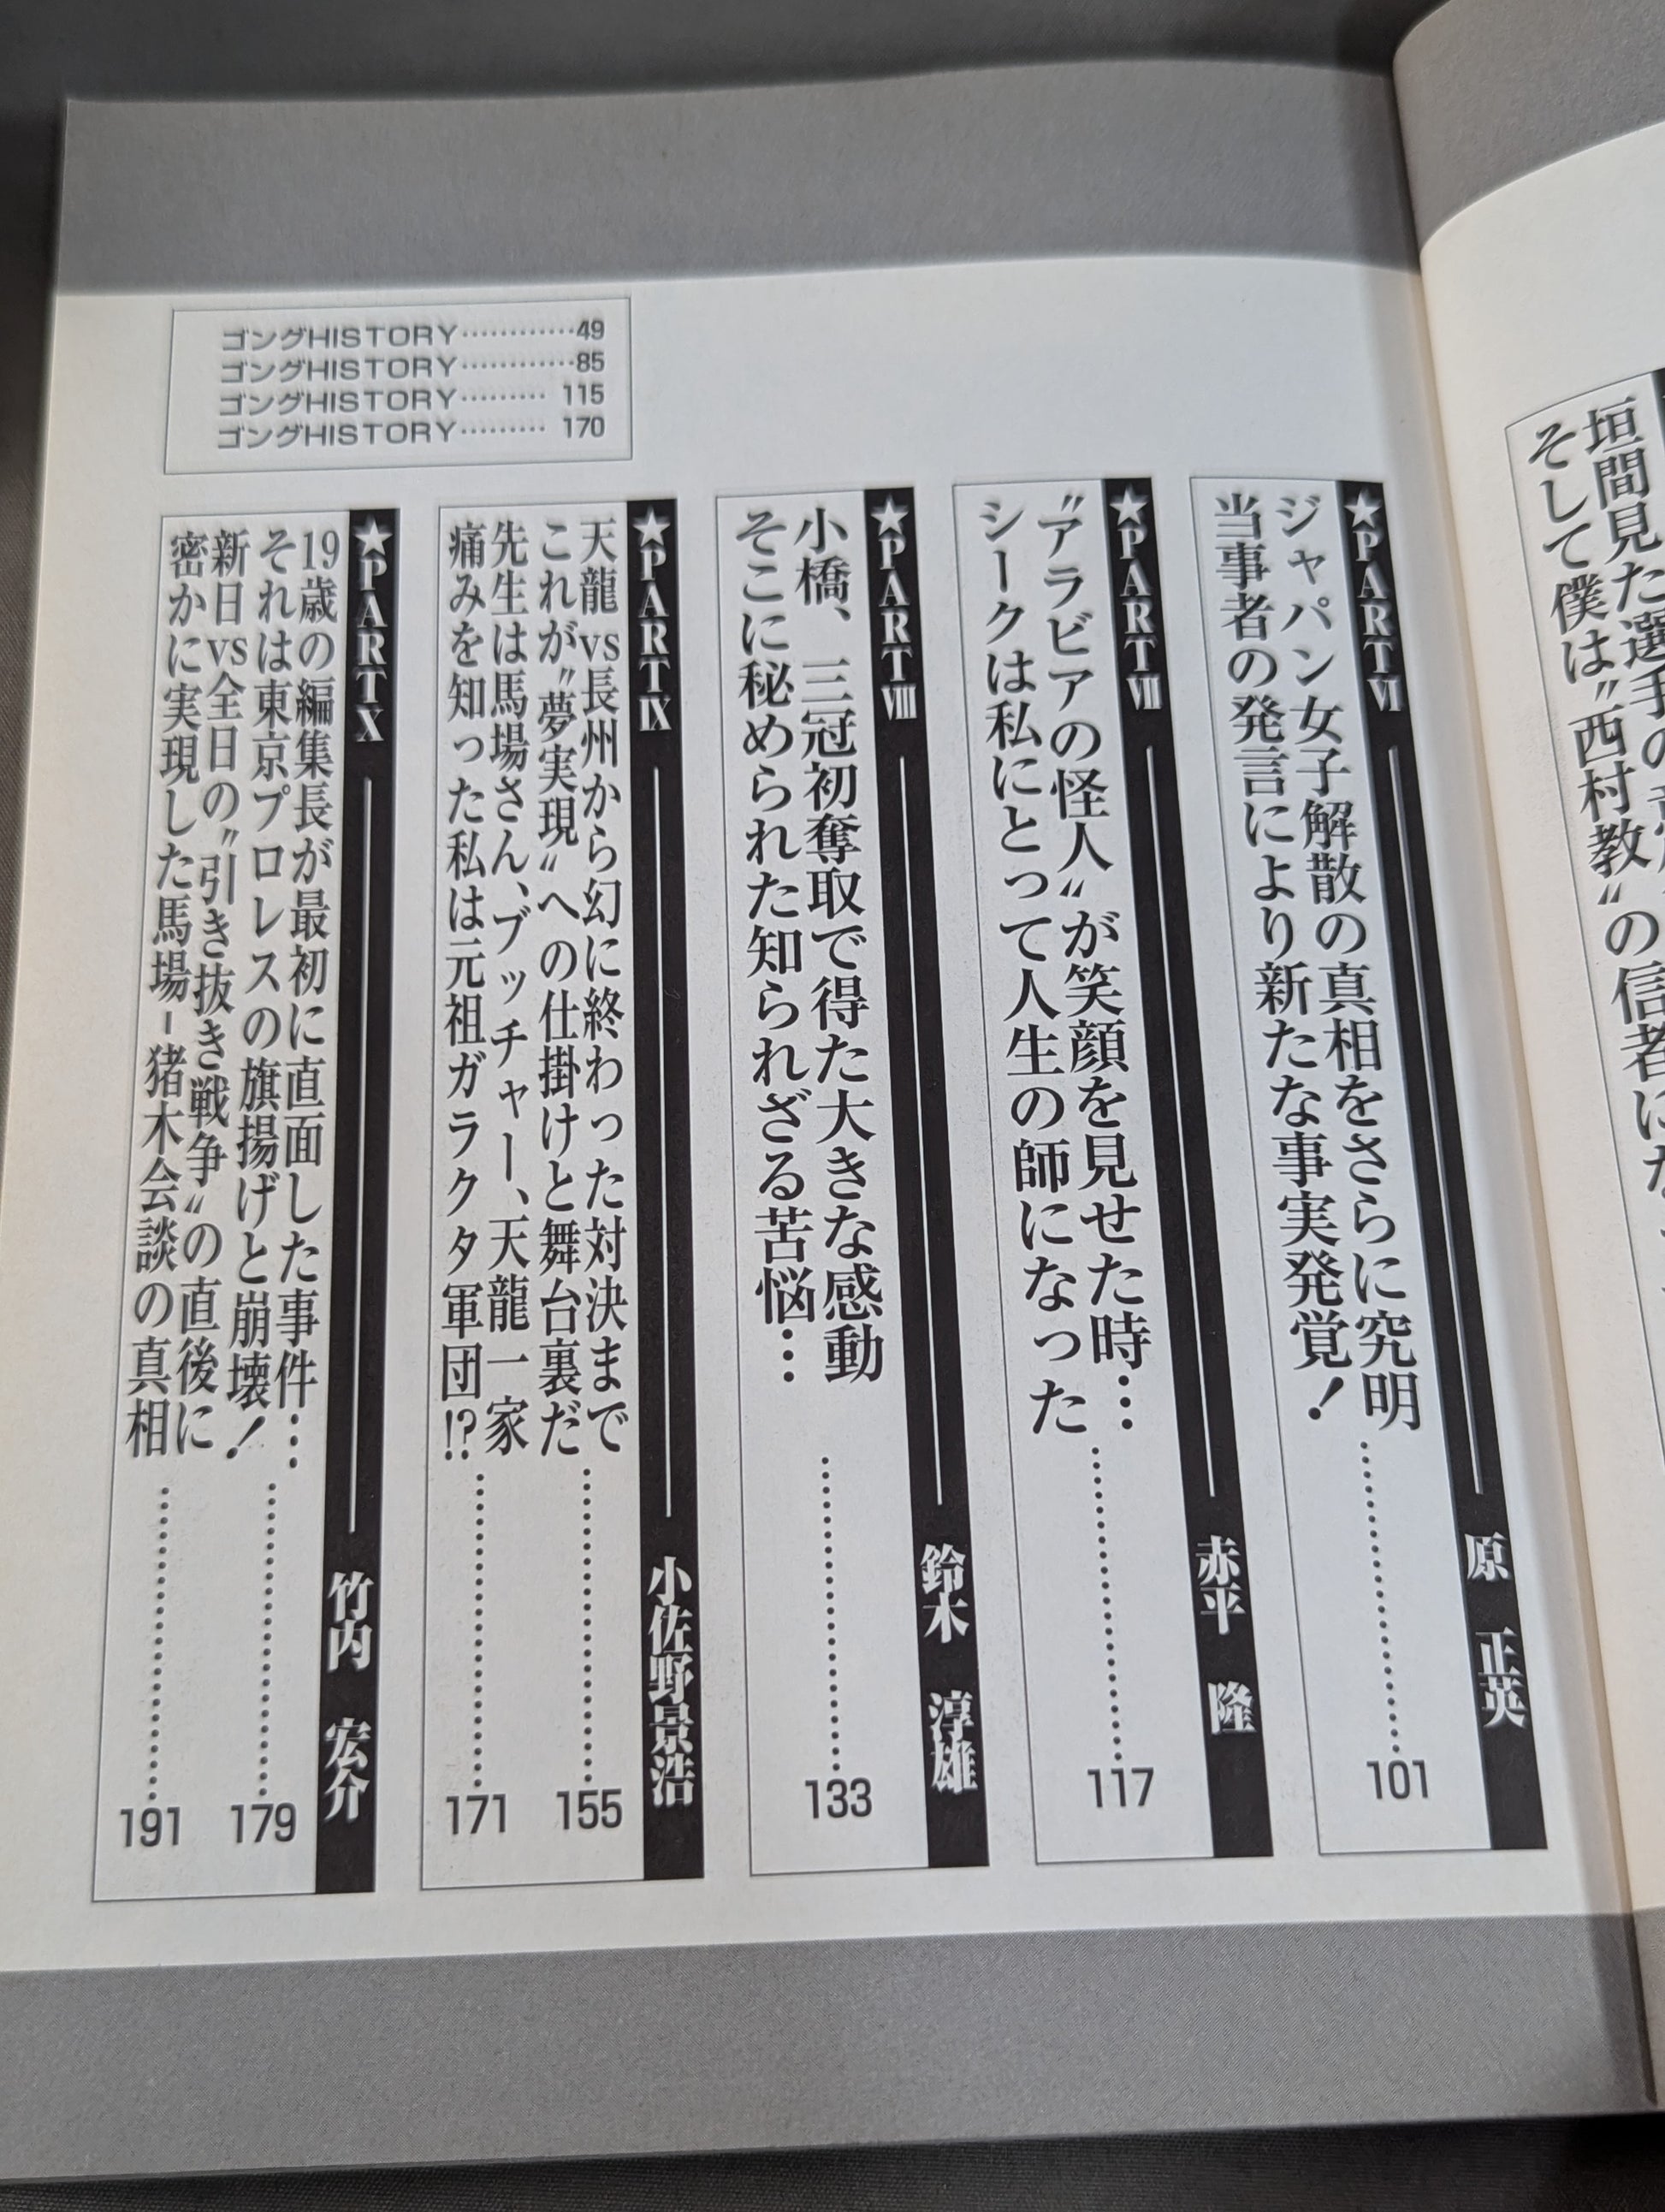 垣間見た選手の
そして僕は〝西村教〟の信者にな
★PART Ⅵ 原 正英
ジャパン女子解散の真相をさらに究明
当事者の発言により新たな事実発覚!
101
★PART Ⅶ 赤平 隆
〝アラビアの怪人〟が笑顔を見せた時…
シークは私にとって人生の師になった
117
★PART Ⅷ 鈴木 淳雄
小橋、三冠初奪取で得た大きな感動
そこに秘められた知られざる苦悩…
133
★PART Ⅸ 小佐野景浩
天龍vs長州から幻に終わった対決まで
これが〝夢実現〟への仕掛けと舞台裏だ
155
先生は馬場さん、ブッチャー、天龍一家
痛みを知った私は元祖ガラクタ軍団!?
171
★PART Ⅹ 竹内 宏介
19歳の編集長が最初に直面した事件…
それは東京プロレスの旗揚げと崩壊!
179
新日vs全日の〝引き抜き戦争〟の直後に
密かに実現した馬場-猪木会談の真相
191
ゴングHISTORY…………49
ゴングHISTORY…………85
ゴングHISTORY……… 115
ゴングHISTORY……… 170